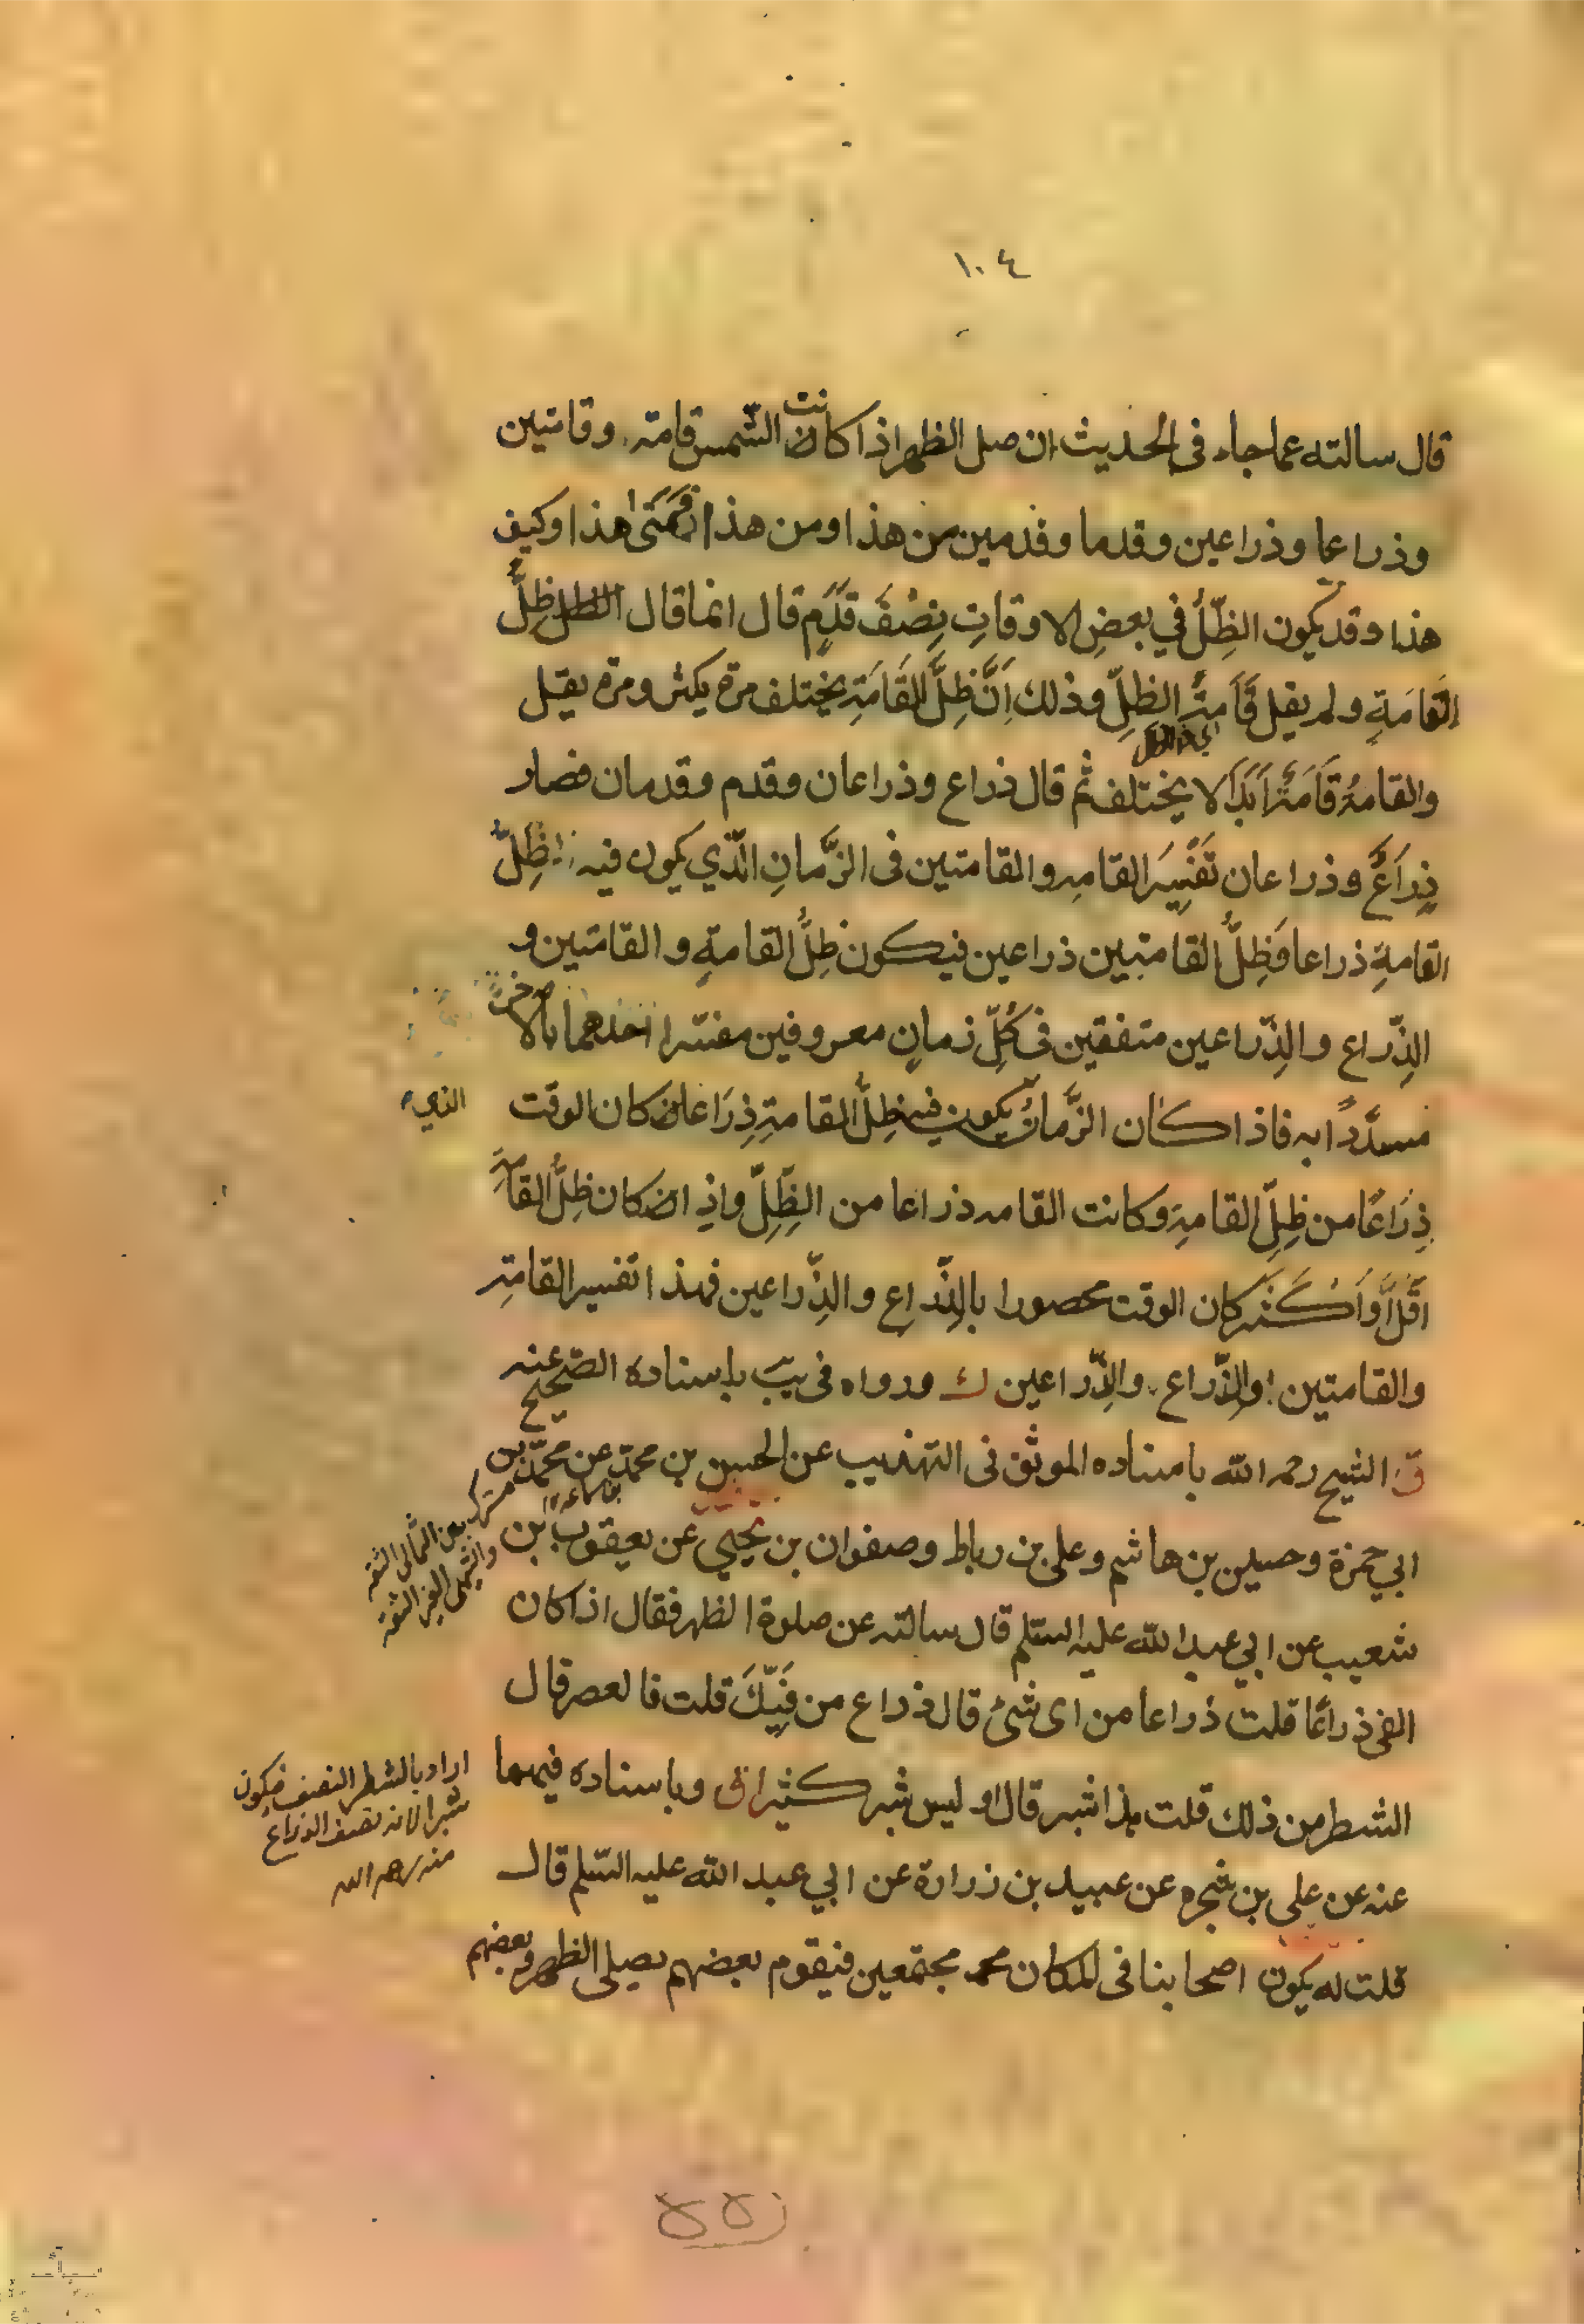 ١٠٤
قال سالته عما جاء فى الحديث ان صل الظهر اذا كانت الشمس قامة وقامتين
وذراعا وذراعين وقدما وقدمين من هذا ومن هذا فَمَتىٰ هذا وكيف
هذا وقد يكون الظِّلُّ في بعضِ الاوقاتِ نِصْفَ قدَمٍ قال انما قال ظِلُّ
القَامَةِ ولم يقل قَامَةُ الظِلِّ وذلك اَنَّ ظِلَّ القَامَةِ يختلف مرة يكثر ومرة يقل
والقامةُ قَامَةٌ اَبَدًا لا يختلف ثم قال ذراع وذراعان وقدم وقدمان فصار
ذِرَاعٌ وذراعان تَفْسِيرَ القامة والقامتين فى الزَّمانِ الّذي يكون فيه ظِلُّ
القامةِ ذراعا فَظِلُّ القامتين ذراعين فيكون ظِلُّ القامةِ والقامتين و
الذِّراع والذِّراعين متفقين فى كُلِّ زمانٍ معروفين مفسّرا احدهما بالاخر
مسدَّدًا به فاذا كان الزَّمانُ يكون فيه ظِلُّ القامةِ ذِرَاعا كان الوقت
الذي
ذِرَاعًا من ظِلِّ القامةِ وكانت القامه ذراعا من الظِّلِّ واذا كان ظِلُّ القامةِ
اَقَلَّ اَو اَكْثَر كان الوقت محصورا بالذِّراعِ والذِّراعين فهذا تفسير القامةِ
والقامتين والذِّراع والذِّراعين ك ورواه فى يب باسناده الصحيح عنه
ق الشيخ رحمه الله باسناده الموثق فى التهذيب عن الحسن بن محمد عن محمّد بن
بن سماعة
ابي حمزة وحسين بن هاشم وعلى بن رباط وصفوان بن يحيي عن يعقوب بن
شعيب عن ابي عبد الله عليه السّلم قال سالته عن صلوة الظهر فقال اذا كان
الفى ذراعًا قلت ذراعا من اى شئ قال ذراع من فَيْئِكَ قلت فالعصر قال
الشطر من ذلك قلت هذا شبر قال او ليس شبر كثيرا ق وباسناده فيهما
اراد بالشطر النصف فيكون
شبرا لانه نصف الذراع
منه رحمه الله
عنه عن على بن شجره عن عبيد بن زرارة عن ابي عبد الله عليه السّلم قال
قلت له يكون اصحابنا فى المكان مجتمعين فيقوم بعضهم يصلى الظهر وبعضهم